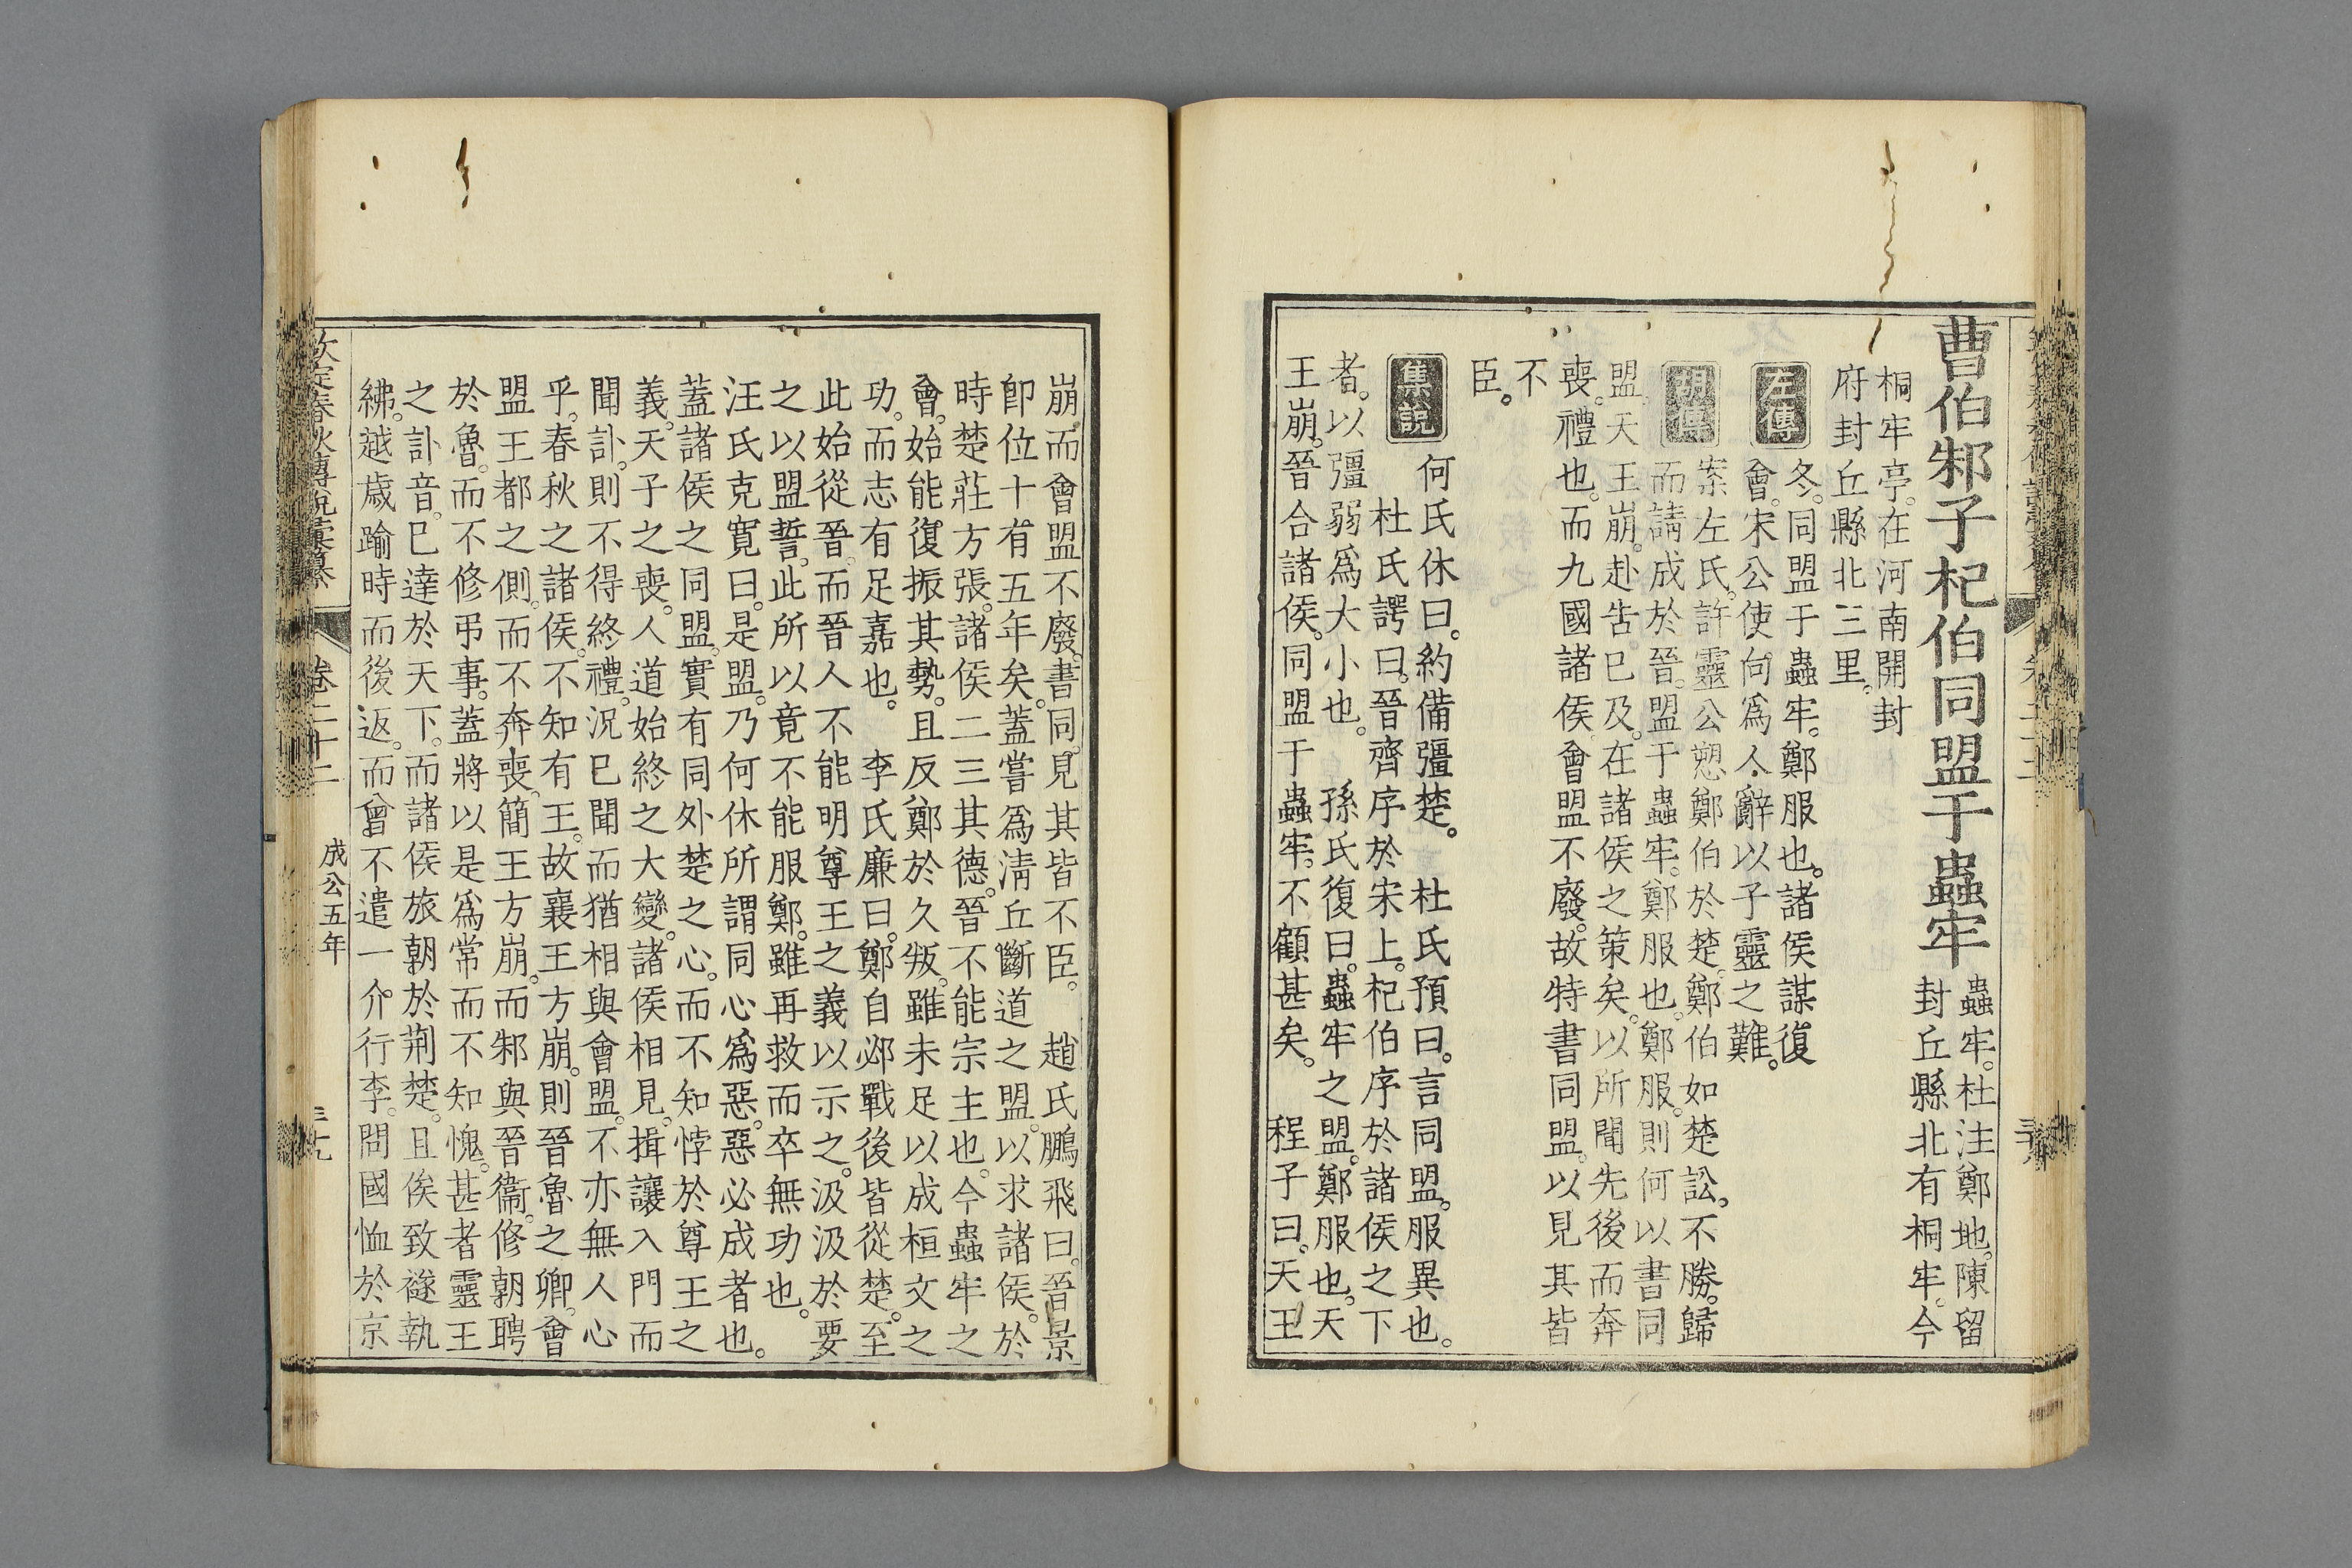 曹伯邾子杞伯同盟于蟲牢
蟲牢。杜注鄭地。陳留
封丘縣北有桐牢。今
桐牢亭。在河南開封
府封丘縣北三里。
左傳
冬。同盟于蟲牢。鄭服也。諸侯謀復
會。宋公使向爲人辭以子靈之難。
胡傳
案左氏。許靈公愬鄭伯於楚。鄭伯如楚訟。不勝。歸
而請成於晉。盟于蟲牢。鄭服也。鄭服。則何以書同
盟。天王崩。赴告已及。在諸侯之策矣。以所聞先後而奔
喪。禮也。而九國諸侯會盟不廢。故特書同盟。以見其皆
不
臣。
集說
何氏休曰。約備彊楚。　杜氏預曰。言同盟。服異也。
杜氏諤曰。晉齊序於宋上。杞伯序於諸侯之下
者。以彊弱爲大小也。　孫氏復曰。蟲牢之盟。鄭服也。天
王崩。晉合諸侯。同盟于蟲牢。不顧甚矣。　程子曰。天王
崩。而會盟不廢。書同。見其皆不臣。　趙氏鵬飛曰。晉景
卽位十有五年矣。蓋嘗爲淸丘斷道之盟。以求諸侯。於
時楚莊方張。諸侯二三其德。晉不能宗主也。今蟲牢之
會。始能復振其勢。且反鄭於久叛。雖未足以成桓文之
功。而志有足嘉也。　李氏廉曰。鄭自邲戰後皆從楚。至
此始從晉。而晉人不能明尊王之義以示之。汲汲於要
之以盟誓。此所以竟不能服鄭。雖再救而卒無功也。
汪氏克寬曰。是盟。乃何休所謂同心爲惡。惡必成者也。
蓋諸侯之同盟。實有同外楚之心。而不知悖於尊王之
義。天子之喪。人道始終之大變。諸侯相見。揖讓入門而
聞訃。則不得終禮。況已聞而猶相與會盟。不亦無人心
乎。春秋之諸侯。不知有王。故襄王方崩。則晉魯之卿。會
盟王都之側。而不奔喪。簡王方崩。而邾與晉衞。修朝聘
於魯。而不修弔事。蓋將以是爲常而不知愧。甚者靈王
之訃音。已達於天下。而諸侯旅朝於荆楚。且俟致襚執
紼。越歲踰時而後返。而會不遣一介行李。問國恤於京
欽定春秋傳說彙纂
卷二十二
成公五年